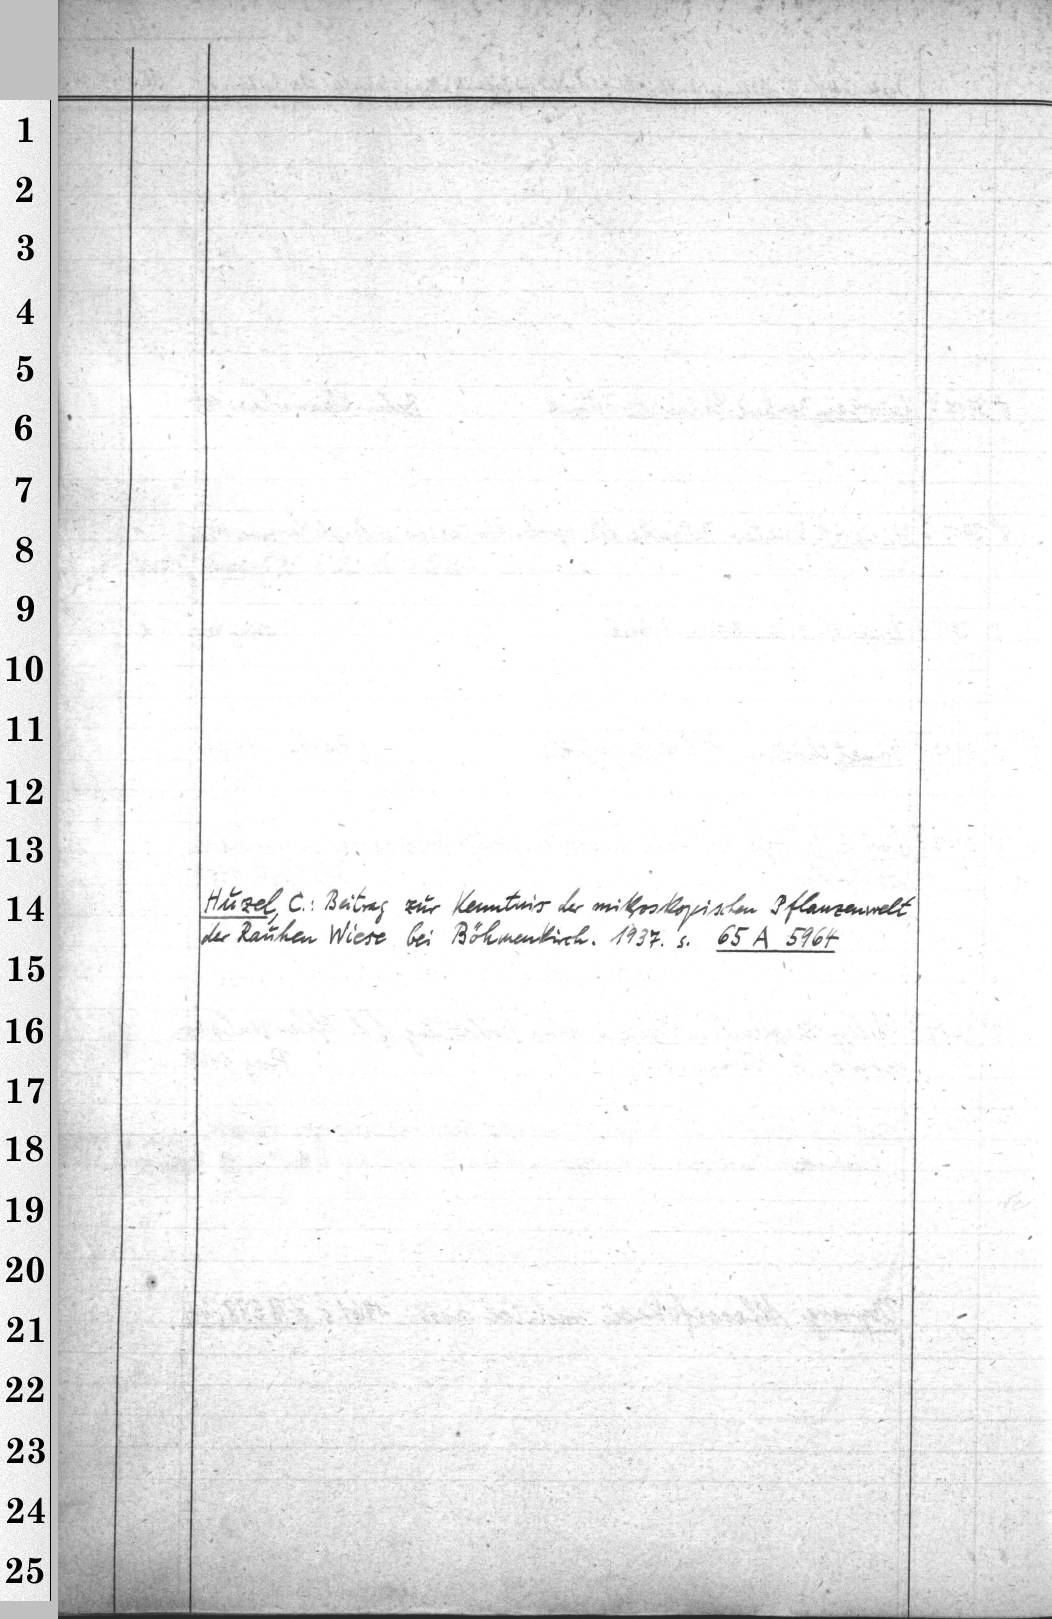 1
2
3
4
5
6
7
8
9
10
11
12
13
14
15
16
17
18
19
20
21
22
23
24
25
Huzel, C.: Beitrag zur Kenntnis der mikroskopischen Pflanzenwelt
der Rauhen Wiese bei Böhmenkirch. 1937. s. 65 A 5964